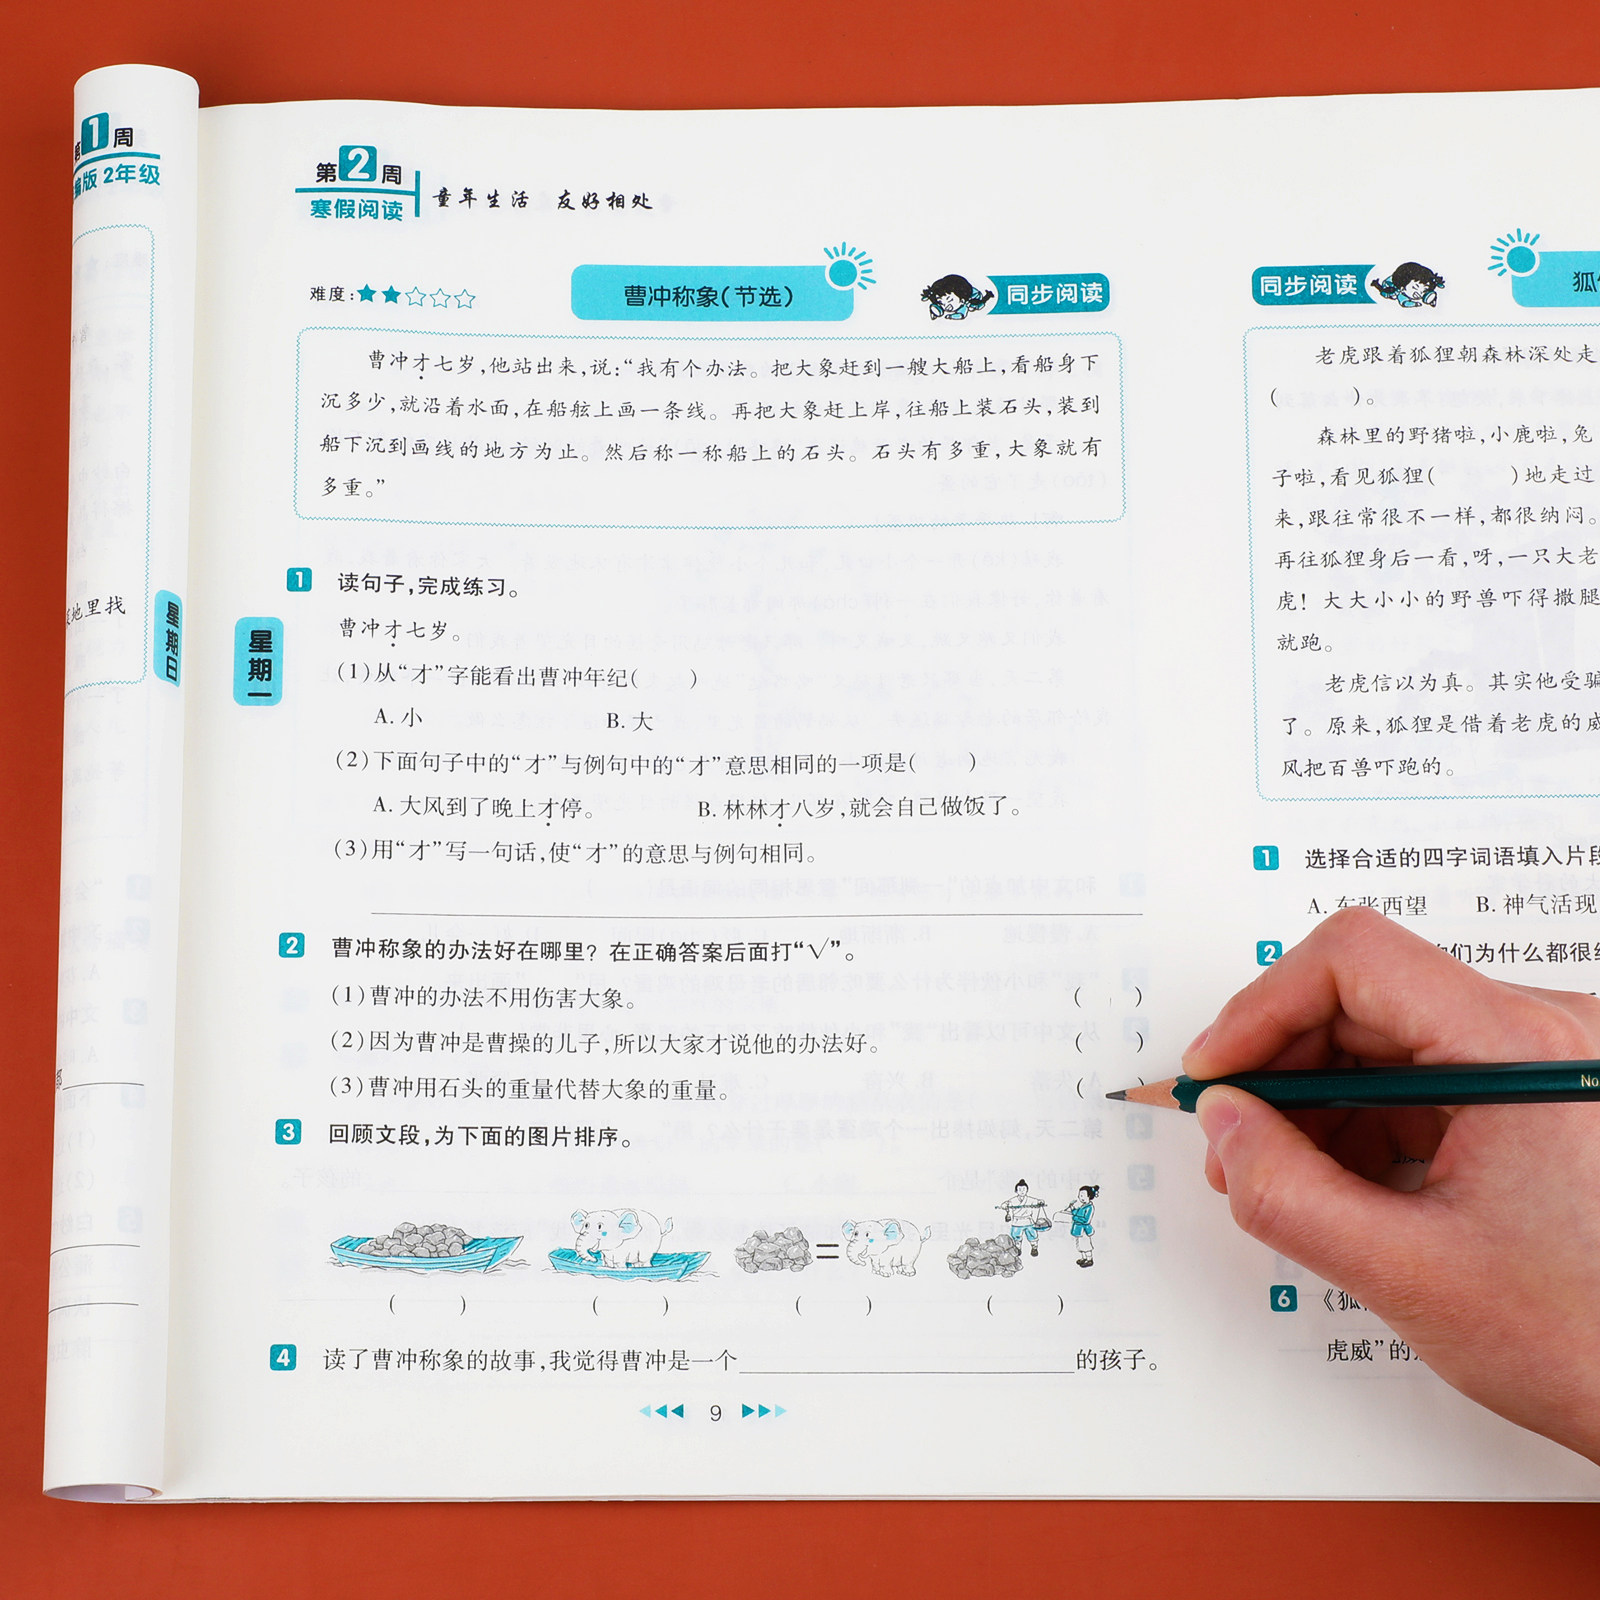 第1周
版 2年级
地里找
星期日
第2周
寒假阅读
童年生活 友好相处
难度:★★☆☆☆
曹冲称象(节选)
同步阅读
曹冲才七岁,他站出来,说:“我有个办法。把大象赶到一艘大船上,看船身下
沉多少,就沿着水面,在船舷上画一条线。再把大象赶上岸,往船上装石头,装到
船下沉到画线的地方为止。然后称一称船上的石头。石头有多重,大象就有
多重。”
星期一
1 读句子,完成练习。
曹冲才七岁。
(1)从“才”字能看出曹冲年纪( )
A. 小 B. 大
(2)下面句子中的“才”与例句中的“才”意思相同的一项是( )
A. 大风到了晚上才停。 B. 林林才八岁,就会自己做饭了。
(3)用“才”写一句话,使“才”的意思与例句相同。
2 曹冲称象的办法好在哪里?在正确答案后面打“√”。
(1)曹冲的办法不用伤害大象。 ( )
(2)因为曹冲是曹操的儿子,所以大家才说他的办法好。 ( )
(3)曹冲用石头的重量代替大象的重量。 ( )
3 回顾文段,为下面的图片排序。
=
( ) ( ) ( ) ( )
4 读了曹冲称象的故事,我觉得曹冲是一个________的孩子。
9
同步阅读
狐
老虎跟着狐狸朝森林深处走
( )。
森林里的野猪啦,小鹿啦,兔
子啦,看见狐狸( )地走过
来,跟往常很不一样,都很纳闷。
再往狐狸身后一看,呀,一只大老
虎!大大小小的野兽吓得撒腿
就跑。
老虎信以为真。其实他受骗
了。原来,狐狸是借着老虎的威
风把百兽吓跑的。
1 选择合适的四字词语填入片段
A. 东张西望 B. 神气活现
2 们为什么都很
6 《狐
虎威”的
No